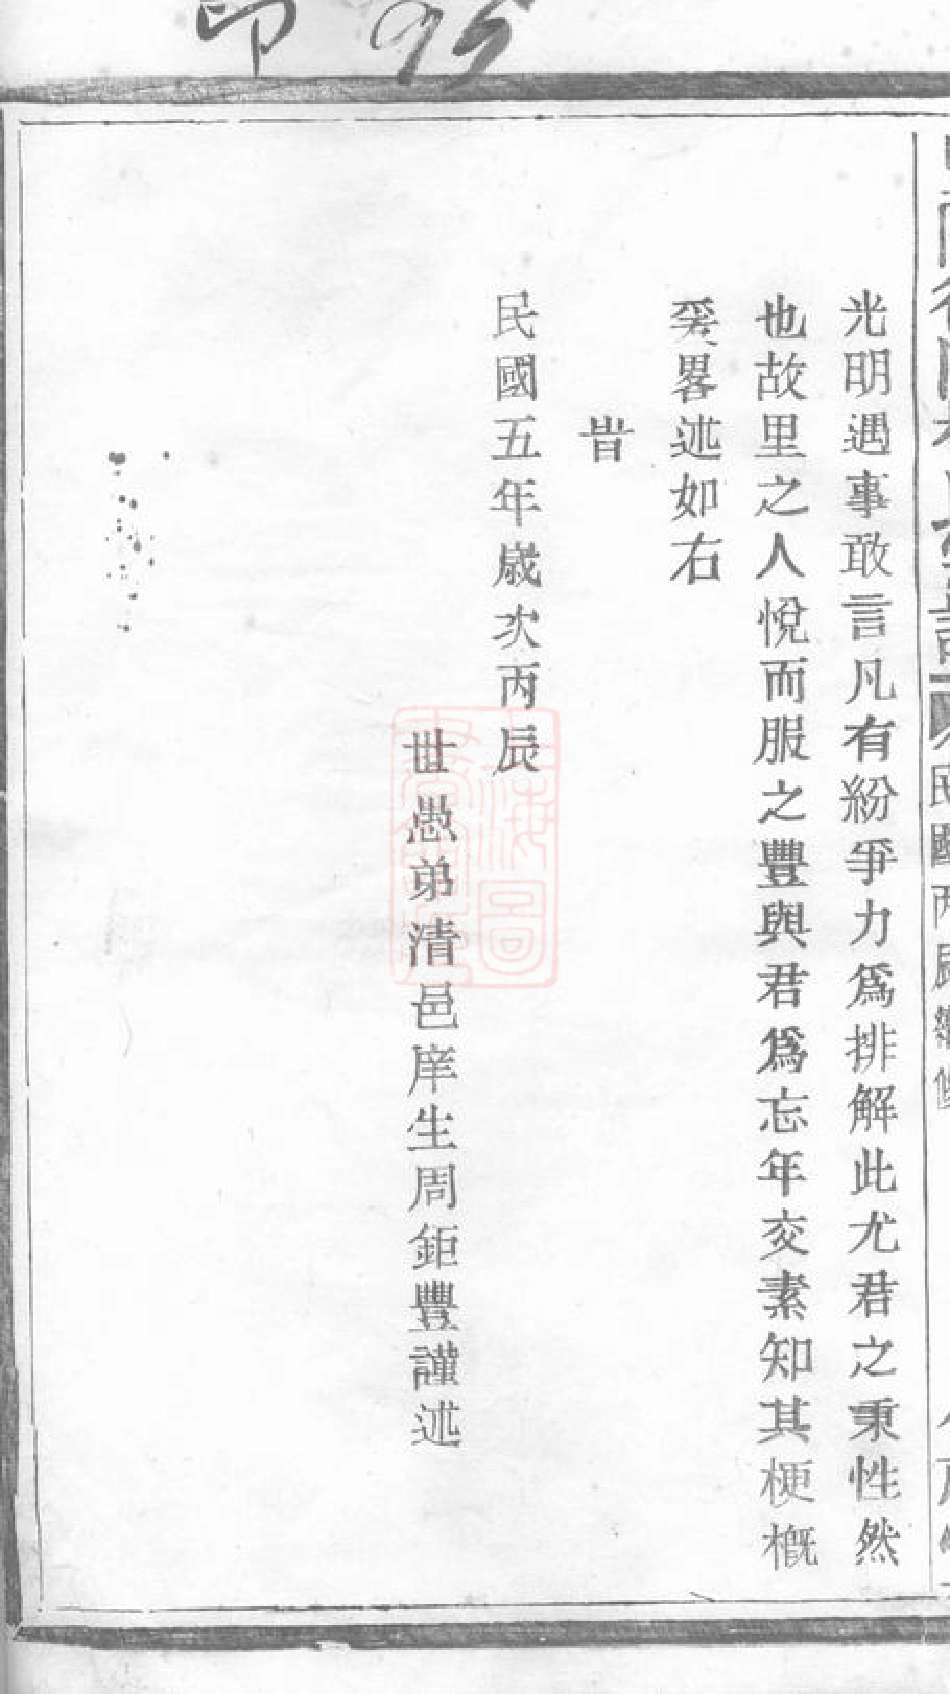 光明遇事敢言凡有紛爭力爲排解此尤君之秉性然
也故里之人悅而服之豐與君爲忘年交素知其梗概
爰畧述如右
旹
民國五年歲次丙辰
世愚弟清邑庠生周鉅豐謹述
民國丙辰續修
印 95